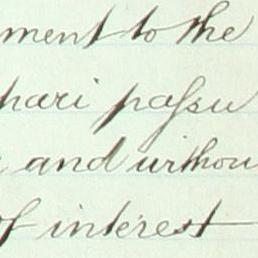 ment to the
pari paſsu
and withou
of interest